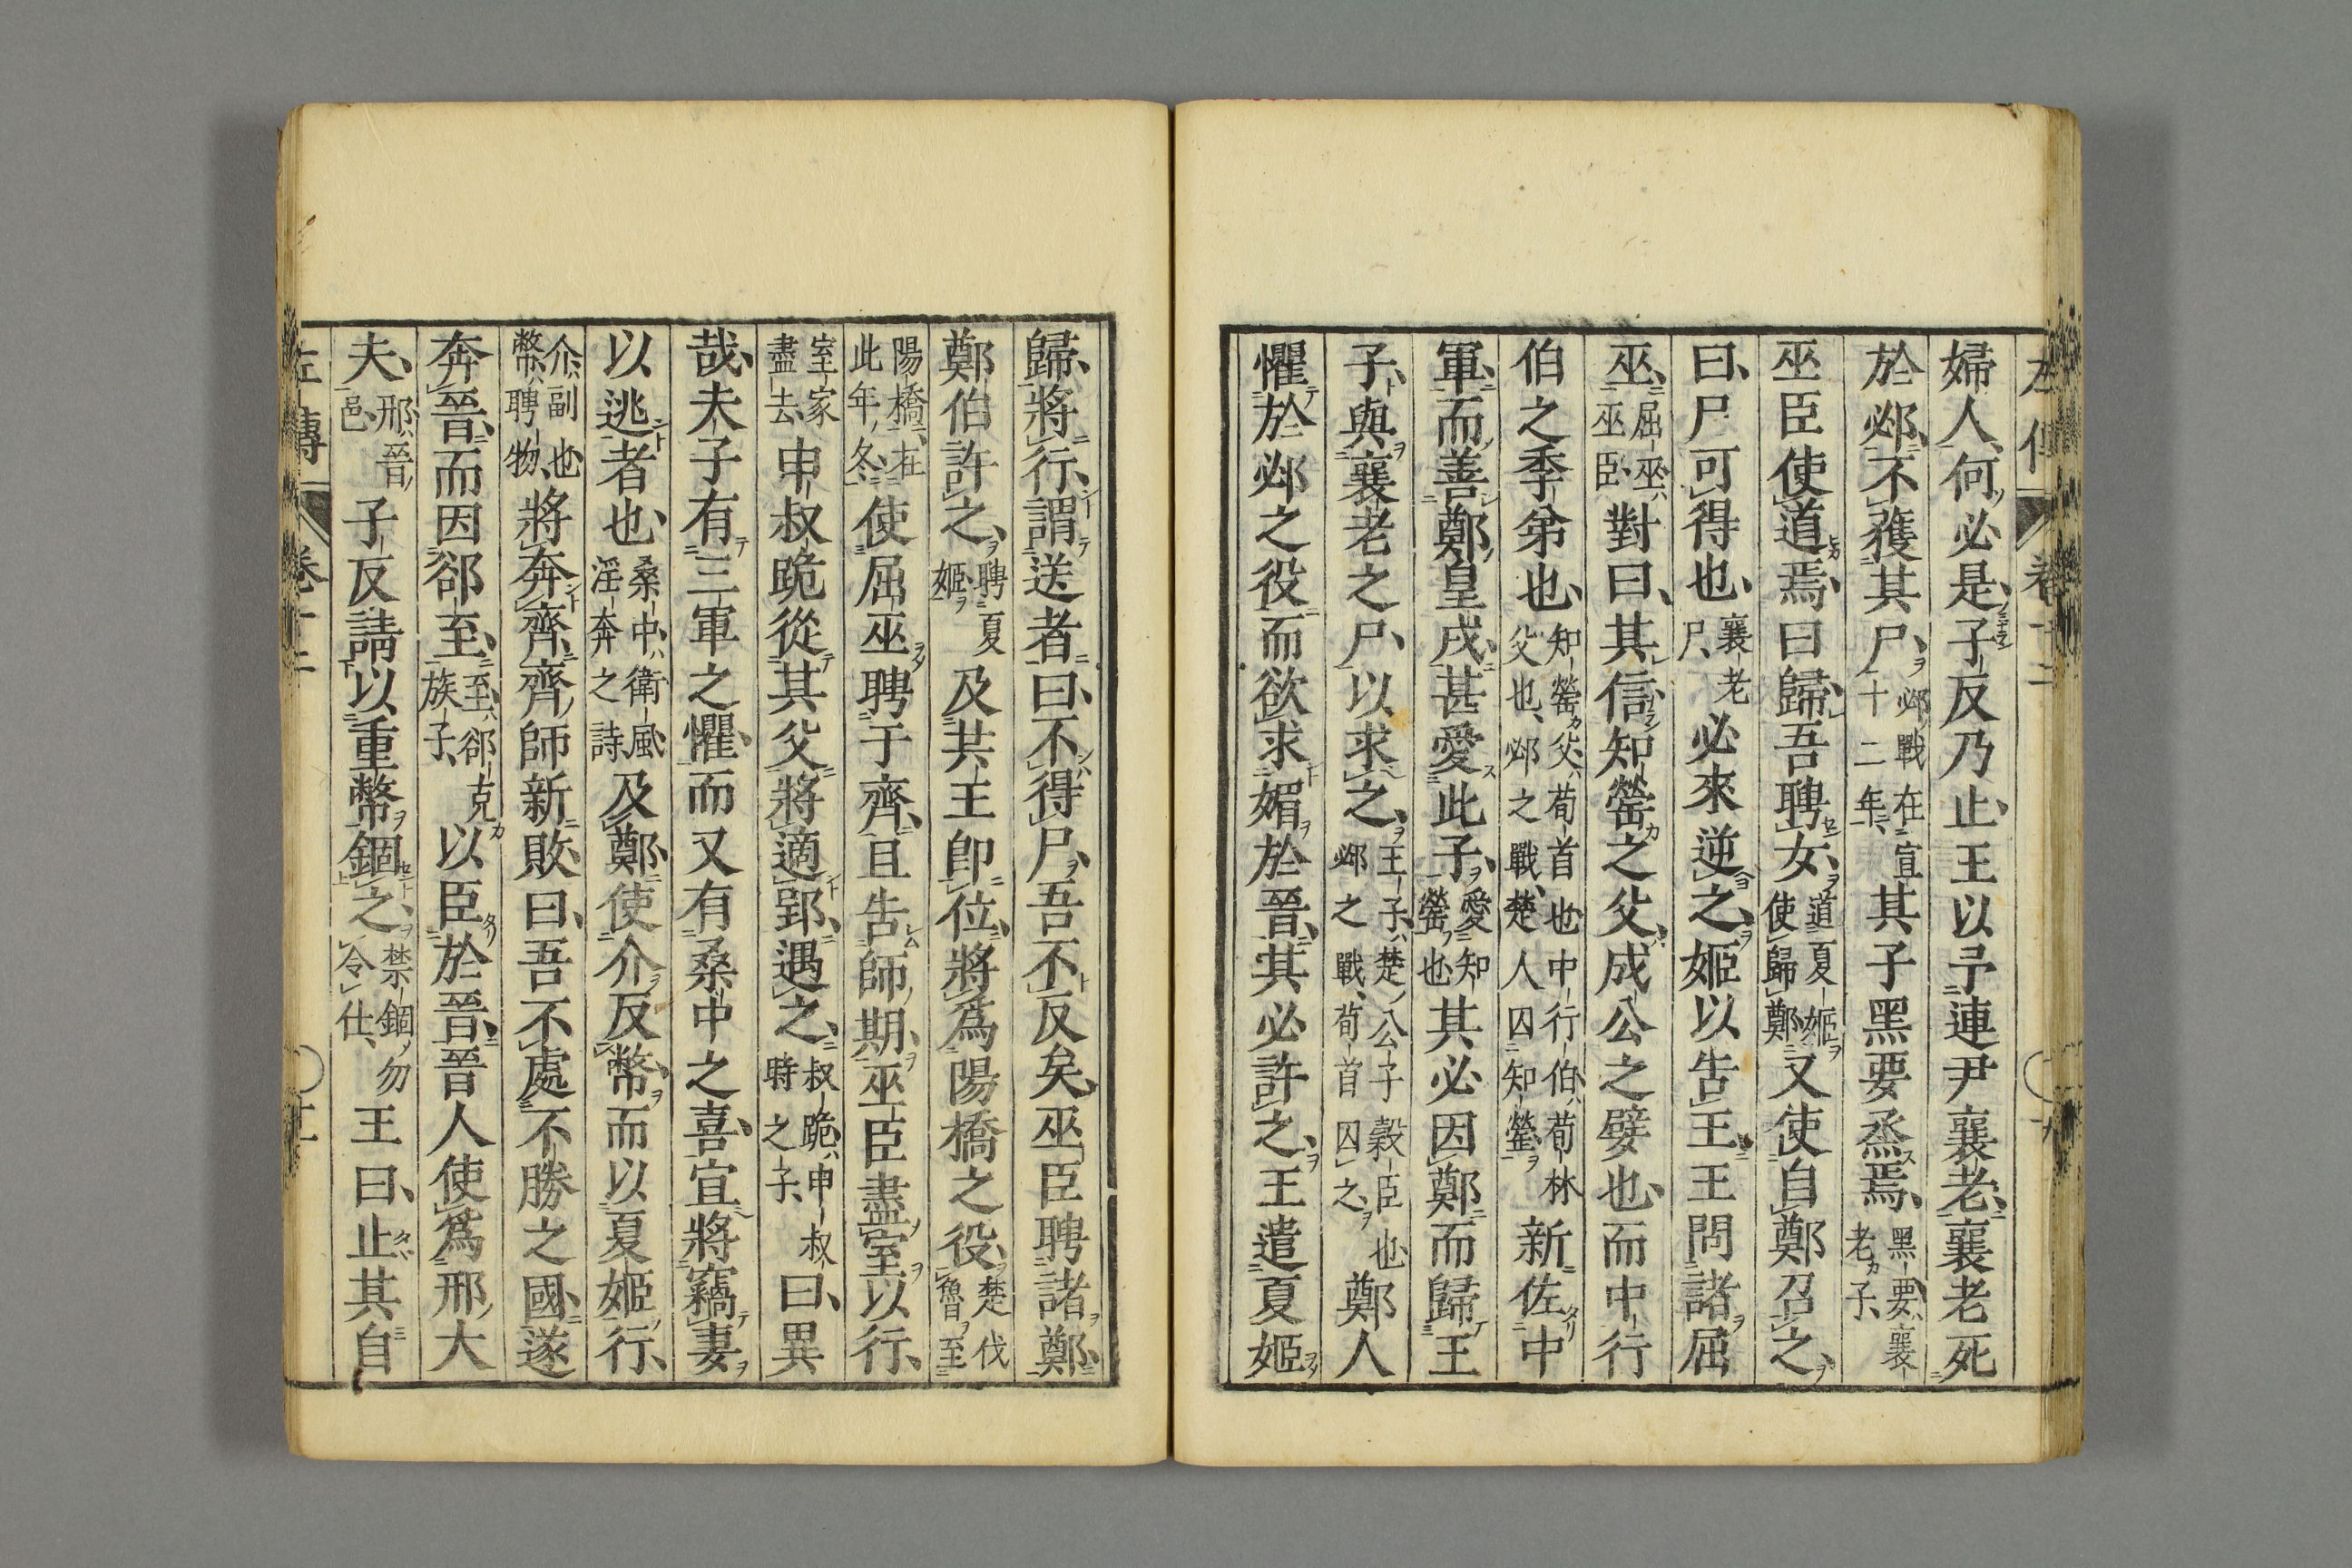 婦人何必是子反乃止王以予連尹襄老襄老死
於邲不獲其尸邲戰在宣十二年其子黑要烝焉黑要襄老子
巫臣使道焉曰歸吾聘女道夏姬使歸鄭又使自鄭召之
曰尸可得也襄老尸必來逆之姬以告王王問諸屈
巫屈巫巫臣對曰其信知罃之父成公之嬖也而中行
伯之季弟也知罃父荀首也中行伯荀林父也邲之戰楚人囚知罃新佐中
軍而善鄭皇戌甚愛此子愛知罃也其必因鄭而歸王
子與襄老之尸以求之王子楚公子穀臣也邲之戰荀首囚之鄭人
懼於邲之役而欲求媚於晉其必許之王遣夏姬
歸將行謂送者曰不得尸吾不反矣巫臣聘諸鄭
鄭伯許之聘夏姬及共王即位將爲陽橋之役楚伐魯至
陽橋在此年冬使屈巫聘于齊且告師期巫臣盡室以行
室家盡去申叔跪從其父將適郢遇之叔跪申叔時之子曰異
哉夫子有三軍之懼而又有桑中之喜宜將竊妻
以逃者也桑中衛風淫奔之詩及鄭使介反幣而以夏姬行
介副也幣聘物將奔齊齊師新敗曰吾不處不勝之國遂
奔晉而因郤至至郤克族子以臣於晉晉人使爲邢大
夫邢晉邑子反請以重幣錮之禁錮勿令仕王曰止其自
左傳 卷十二